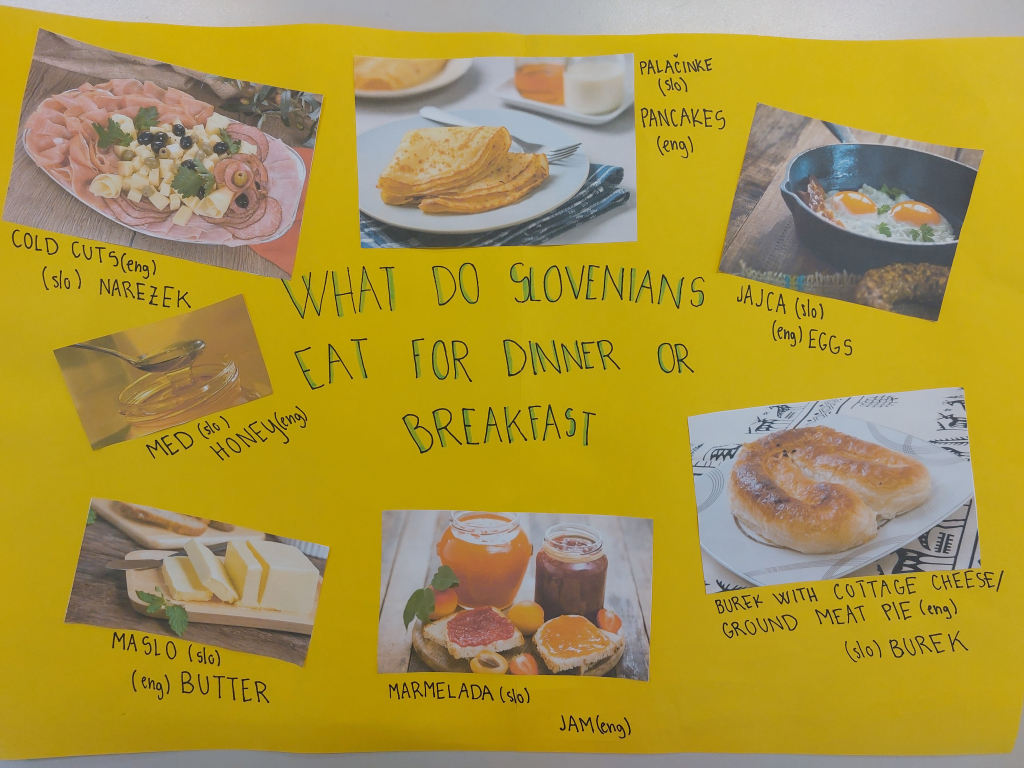 PALAČINKE
(slo)
PANCAKES
(eng)
COLD CUTS(eng)
(slo) NAREZEK
WHAT DO SLOVENIANS
EAT FOR DINNER OR
BREAKFAST
JAJCA (slo)
(eng) EGGS
MED (slo)
HONEY(eng)
MASLO (slo)
(eng) BUTTER
MARMELADA (slo)
JAM(eng)
BUREK WITH COTTAGE CHEESE/
GROUND MEAT PIE (eng)
(slo) BUREK